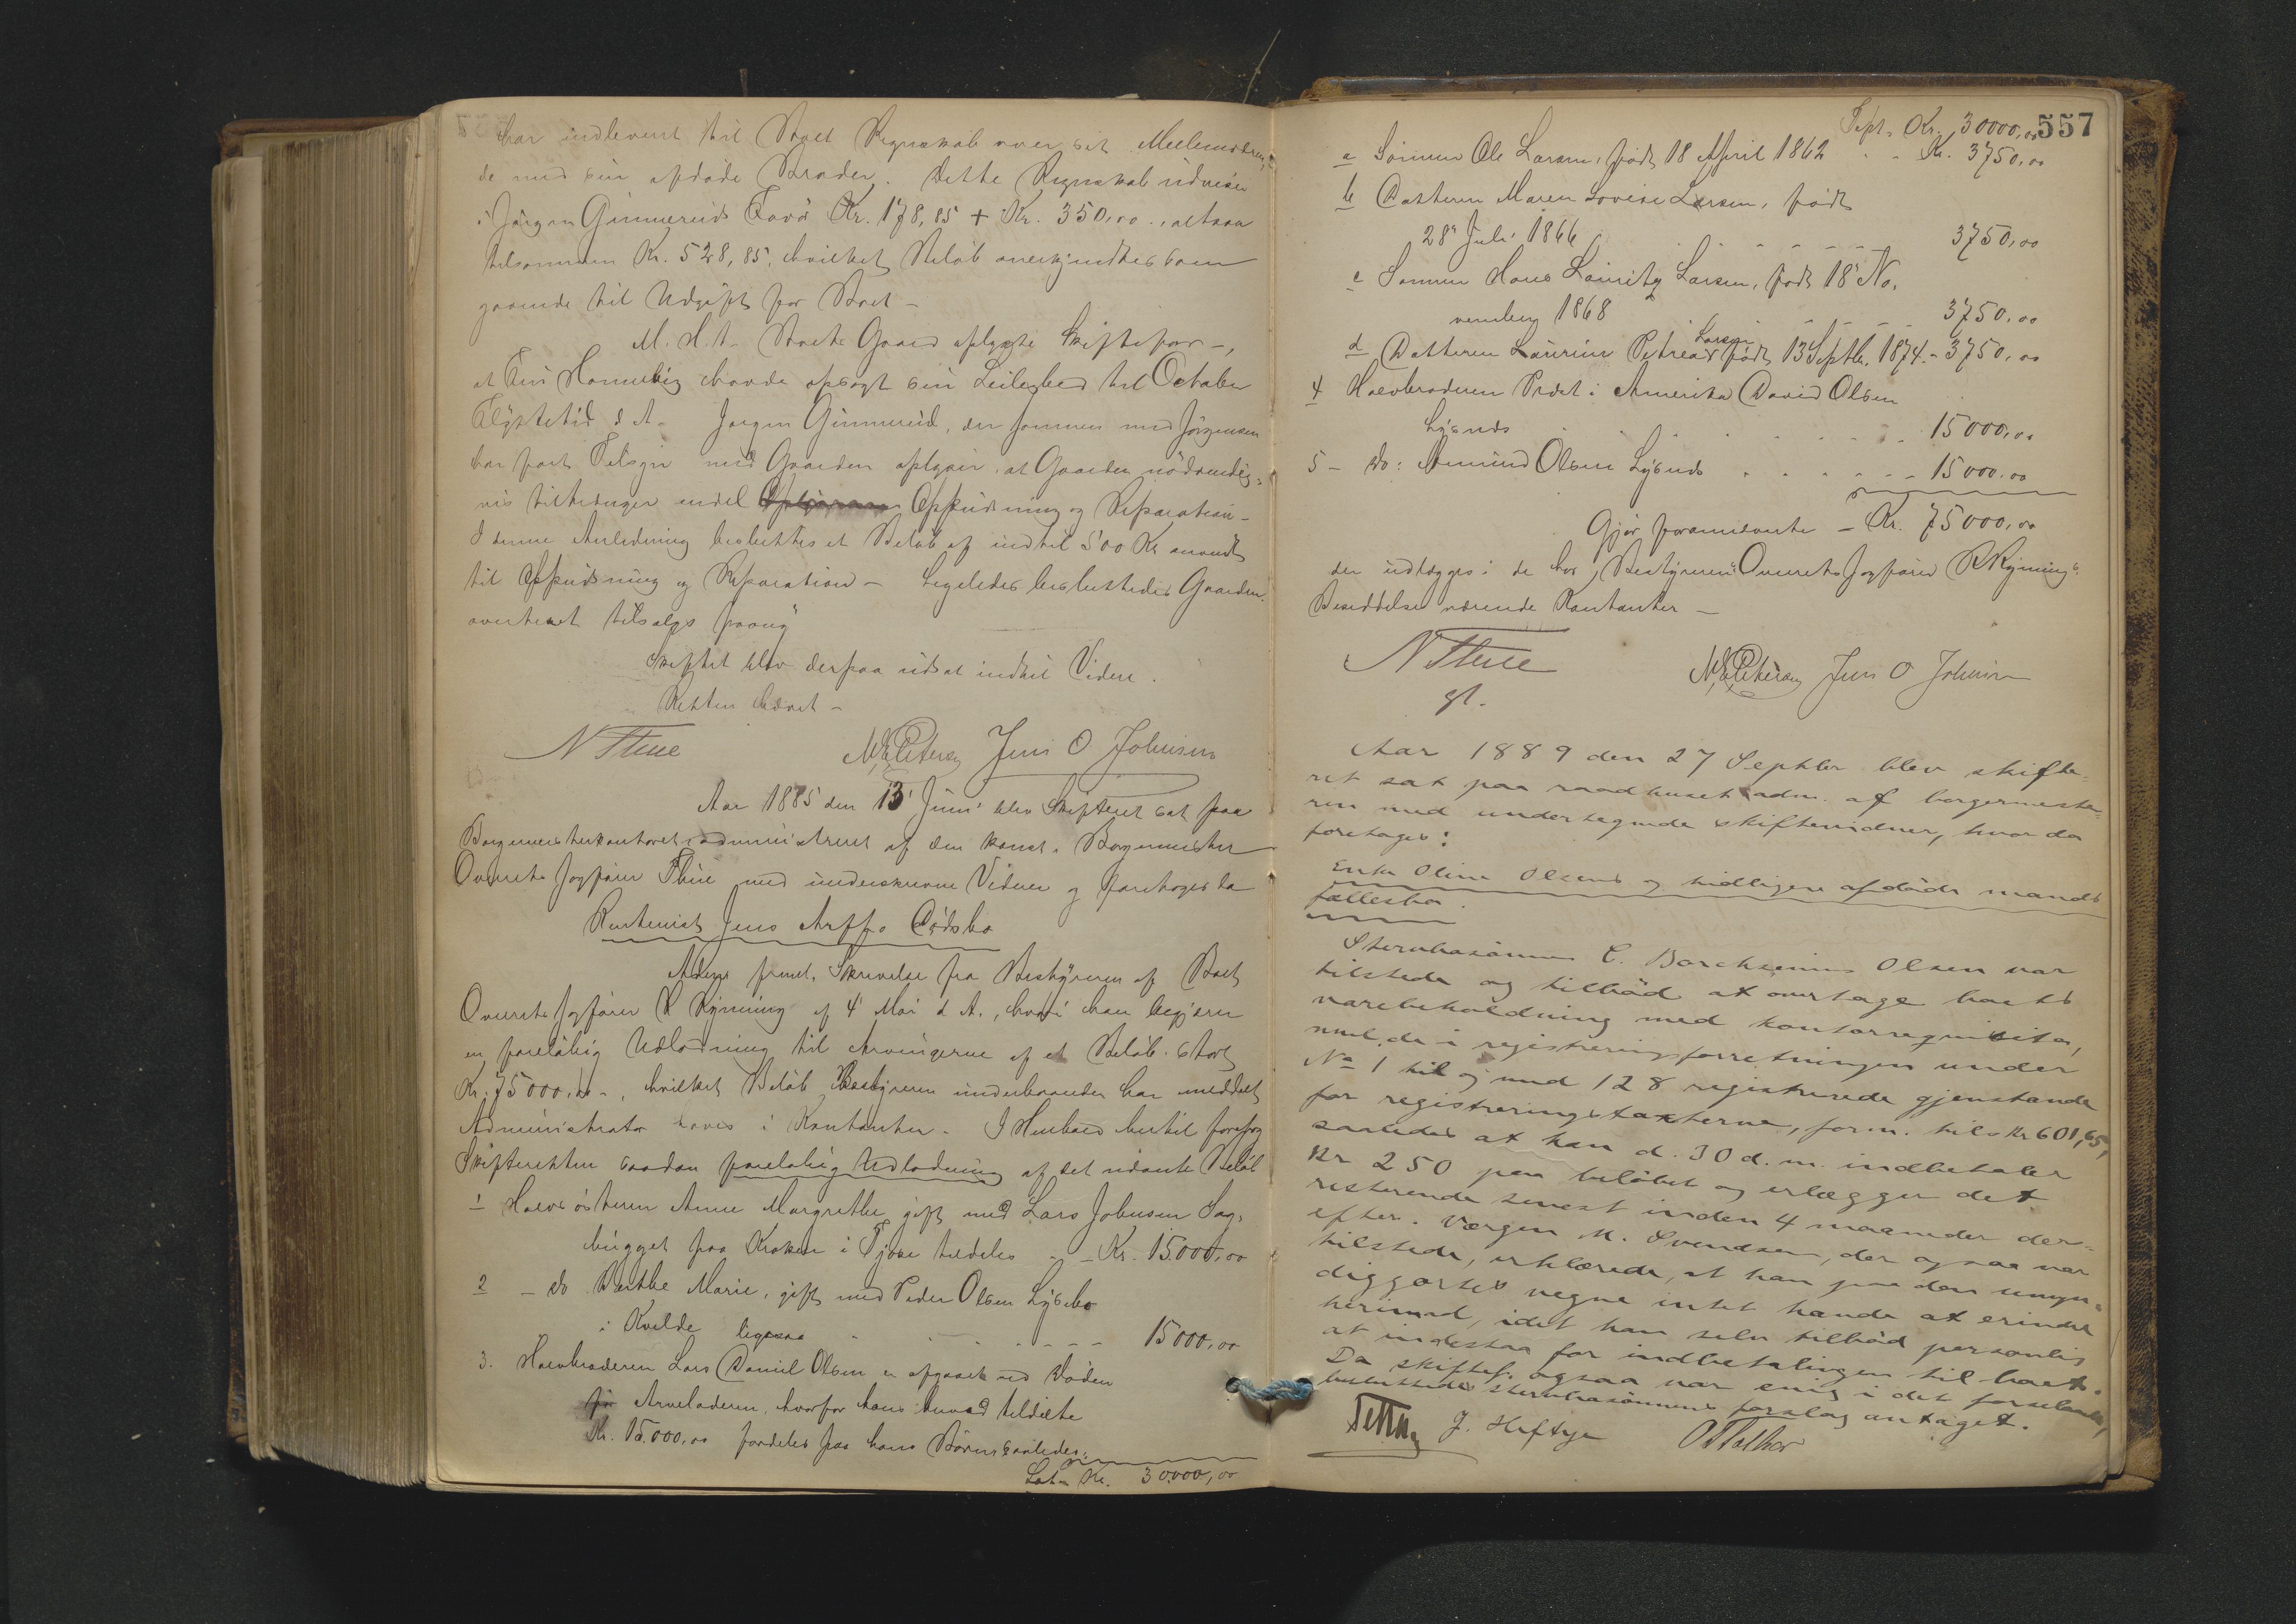 har indleveret til Boet Regnskab over sit Mellemværen-
de med sin afdøde Broder. Dette Regnskab udviser
i Jørgen Gunnereids Favör Kr. 178,85 + Kr. 350,00, altsaa
tilsammen Kr. 528,85, hvilket Beløb anerkjendtes som
gaaende til Udgift for Boet -
M. H. t. Boets Gaard oplyste Skifteforv -,
at havde opsagt sin Leilighed til October
Flyttetid d. A. Jørgen Gunnereid, der sammen med Jörgensen
har havt Tilsyn med Gaarden oplyser, at Gaarden nødvendig-
vis tiltrænger endel Oppudsning og Reparation -
I denne Anledning besluttes et Beløb af indtil 500 Kr anvendt
til Oppudsning og Reparation - Ligeledes besluttedes Gaarden
averteret tilsalgs paany
Skiftet blev derpaa udsat indtil Videre.
Retten hævet -
N Thue Jens O Johnsen
Aar 1885 den 13 Juni blev Skifteret sat paa
Borgermesterkontoret, administreret af den const. Borgermester
Overrets Sagfører Thue med underskrevne Vidner og foretoges da
Rentenist Jens Arffs Dødsbo
Skrivelse fra Bestyreren af Boet
Overrets Sagfører R Ryning af 4 Mai d. A., hvori han begjærer
en foreløbig Udlodning til Arvingerne af et Beløb stort
Kr. 75000,00 -, hvilket Beløb Bestyreren underhaanden har meddelt
Administrator haves i Kontanter. I Henhold hertil foretog
Skifteretten saadan foreløbig Udlodning af det nævnte Beløb
1 Halvsøsteren Anne Margrethe gift med Lars Johnsen Sag-
bugget paa Kroken i Tjose tildeles - - Kr. 15.000,00
2 - do Berthe Marie, gift med Peder Olsen Lysebo
i Kvelde ligesaa - - - - 15000,00
3. Halvbroderen Lars Daniel Olsen er afgaaet ved Døden
før Arveladeren, hvorfor hans herved tildelte
Kr. 15.000,00 fordeles paa hans Børn saaledes:
Lat. Kr. 30.000,00
557
Tspt. Kr. 30000,00
a Sønnen Ole Larsen, født 18 April 1862 - - Kr. 3750,00
b Datteren Maren Lovise Larsen, født
28 Juli 1866 - - - - 3750,00
c Sønnen Hans Lauritz Larsen, født 18 No-
vember 1868 - - - - 3750,00
d Datteren Laurine Petrea Larsen født 13 Septb. 1874 - 3750,00
4 Halvbroderen Prest i Amerika David Olsen
Lysnes - - - - 15000,00
5 - do: Amund Olsen Lysnes - - - - 15000,00
Gjør forannævnte - Kr. 75000,00
der udlægges i de hos Bestyreren Overrets Sagfører R Rynings
Besiddelse værende Kontanter -
N Thue
gt.
Jens O Johnsen
Aar 1889 den 27 Septbr blev skifte-
ret sat paa raadhuset adm. af borgermeste-
ren med undertegnede skiftevidner, hvor da
foretages:
Enke Oline Olsens og tidligere afdøde mands
fællesbo.
Stervbosønnen C. Borchsenius Olsen var
tilstede og tilbød at overtage boets
varebeholdning med kontorrequisita,
nml. de i registreringsforretningen under
No 1 til og med 128 registrerede gjenstande
for registreringstaxterne, form. tils Kr 601,65,
saaledes at han d. 30 d. m. indbetaler
Kr 250 paa beløbet og erlægger det
resterende senest inden 4 maaneder der-
efter. Værgen M. Svendsen, der ogsaa var
tilstede, erklærede, at han paa den umyn-
diggjortes vegne intet havde at erindre
herimod, idet han selv tilbød personlig
at indestaa for indbetalingen til boet.
Da skiftef. ogsaa var enig i det forelagte,
besluttedes stervbosønnens forslag antaget.
J. Heftye